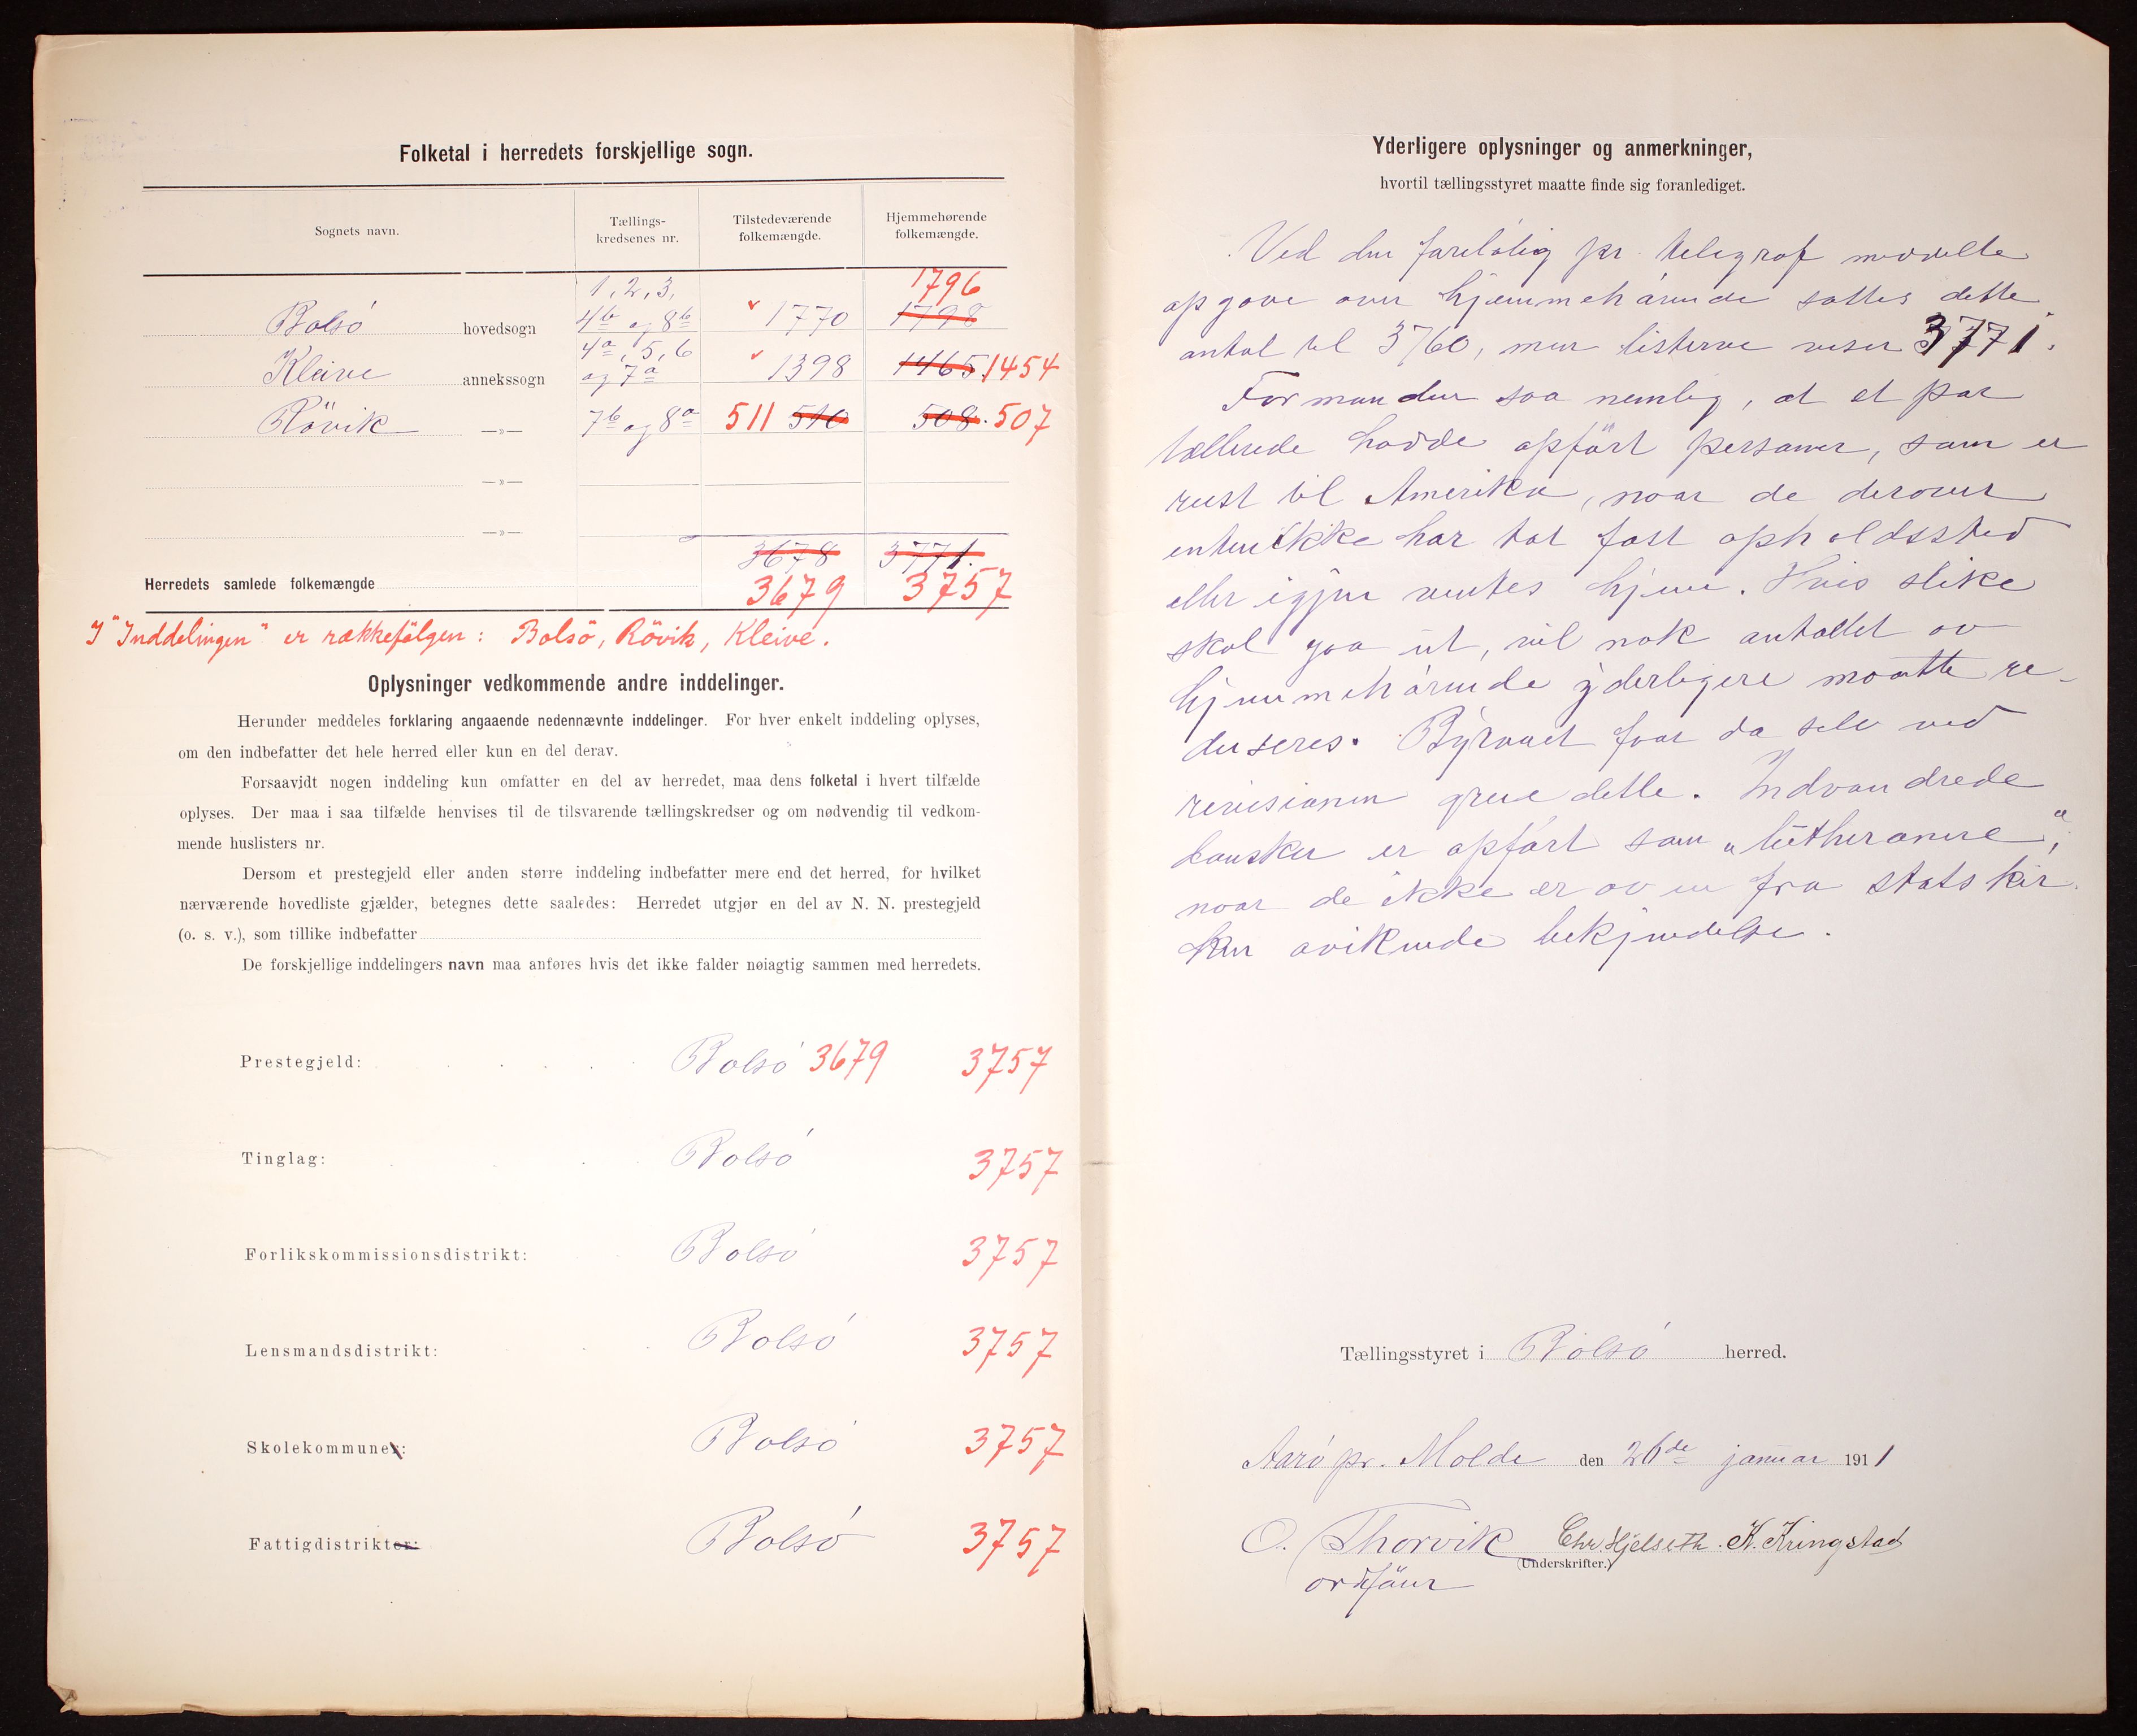 Folketal i herredets forskjellige sogn.
Sognets navn. Tællings-kredsenes nr. Tilstedeværende folkemængde. Hjemmehørende folkemængde.
1, 2, 3, 1796
Bolsö hovedsogn 4b og 8b 1770 1798
4a, 5, 6
Kleive annekssogn og 7a 1398 1465. 1454
Rövik —»— 7b og 8a 511 510 508. 507
—»—
—»—
3678 3771.
Herredets samlede folkemængde 3679 3757
I "Inddelingen" er rækkefölgen: Bolsö, Rövik, Kleive.
Oplysninger vedkommende andre inddelinger.
Herunder meddeles forklaring angaaende nedennævnte inddelinger. For hver enkelt inddeling oplyses,
om den indbefatter det hele herred eller kun en del derav.
Forsaavidt nogen inddeling kun omfatter en del av herredet, maa dens folketal i hvert tilfælde
oplyses. Der maa i saa tilfælde henvises til de tilsvarende tællingskredser og om nødvendig til vedkom-
mende huslisters nr.
Dersom et prestegjeld eller anden større inddeling indbefatter mere end det herred, for hvilket
nærværende hovedliste gjælder, betegnes dette saaledes: Herredet utgjør en del av N. N. prestegjeld
(o. s. v.), som tillike indbefatter
De forskjellige inddelingers navn maa anføres hvis det ikke falder nøiagtig sammen med herredets.
Prestegjeld: Bolsö 3679 3757
Tinglag: Bolsö 3757
Forlikskommissionsdistrikt: Bolsö 3757
Lensmandsdistrikt: Bolsö 3757
Skolekommuner: Bolsö 3757
Fattigdistrikter: Bolsö 3757
Yderligere oplysninger og anmerkninger,
hvortil tællingsstyret maatte finde sig foranlediget.
Ved den forelöbig pr. telegraf meddelte
opgave over hjemmehörende sattes dette
antal til 3760, men listerne viser 3771.
Formanden saa nemlig, at et par
tællerede hadde opfört personer, som er
reist til Amerika, naar de derover
enten ikke har tat fast opholdssted
eller igjen ventes hjem. Hvis slike
skal gaa ut, vil nok antallet av
hjemmehörende yderligere maatte re-
duseres. Byraaet faar da selv ved
revisionen greie dette. Indvandrede
dansker er opfört som „lutheranere",
naar de ikke er av en fra statskir-
ken avikende bekjendelse.
Tællingsstyret i Bolsö herred.
Aarö pr. Molde den 26de januar 1911
O. Thorvik Chr Hjelseth. K. Kringstad
(Underskrifter.)
ordförer